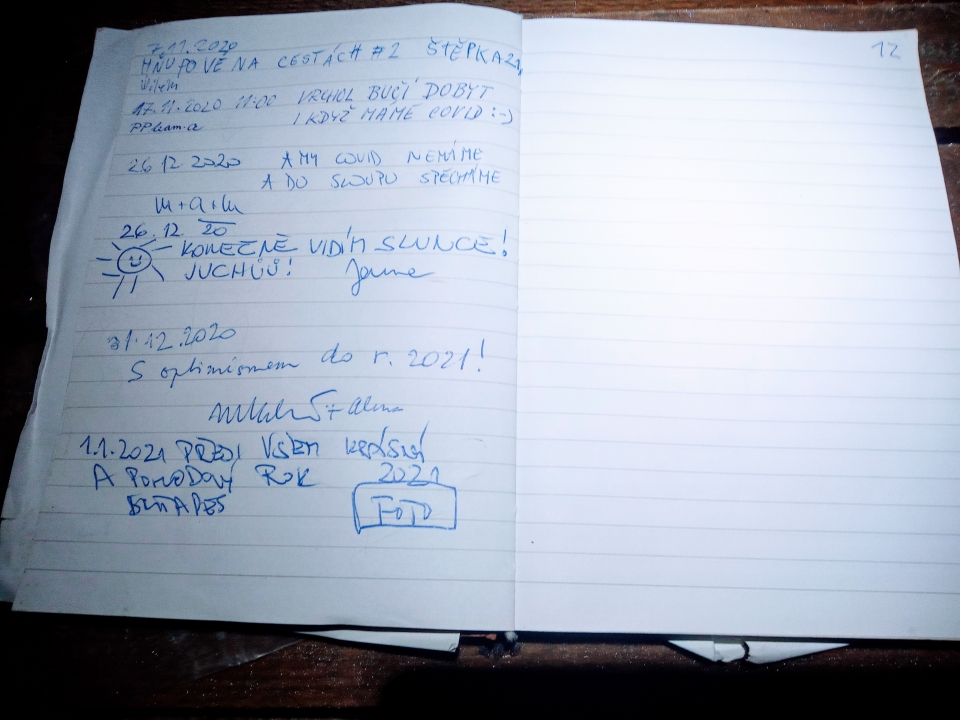 7.11.2020
HŇUPOVĚ NA CESTÁCH #2 ŠTĚPKA21
17.11.2020 11:00 VRCHOL BUČÍ DOBYT
PPteam.cz I KDYŽ MÁME COVID :-)
26.12.2020 A MY COVID NEMÁME
A DO SLOUPU SPĚCHÁME
m+a+m
26.12.20
KONEČNĚ VIDÍM SLUNCE!
JUCHŮŮ!
31.12.2020
S optimismem do r. 2021!
1.1.2021 PŘEJI VŠEM KRÁSNÝ
A POHODOVÝ ROK 2021
FOTO
12